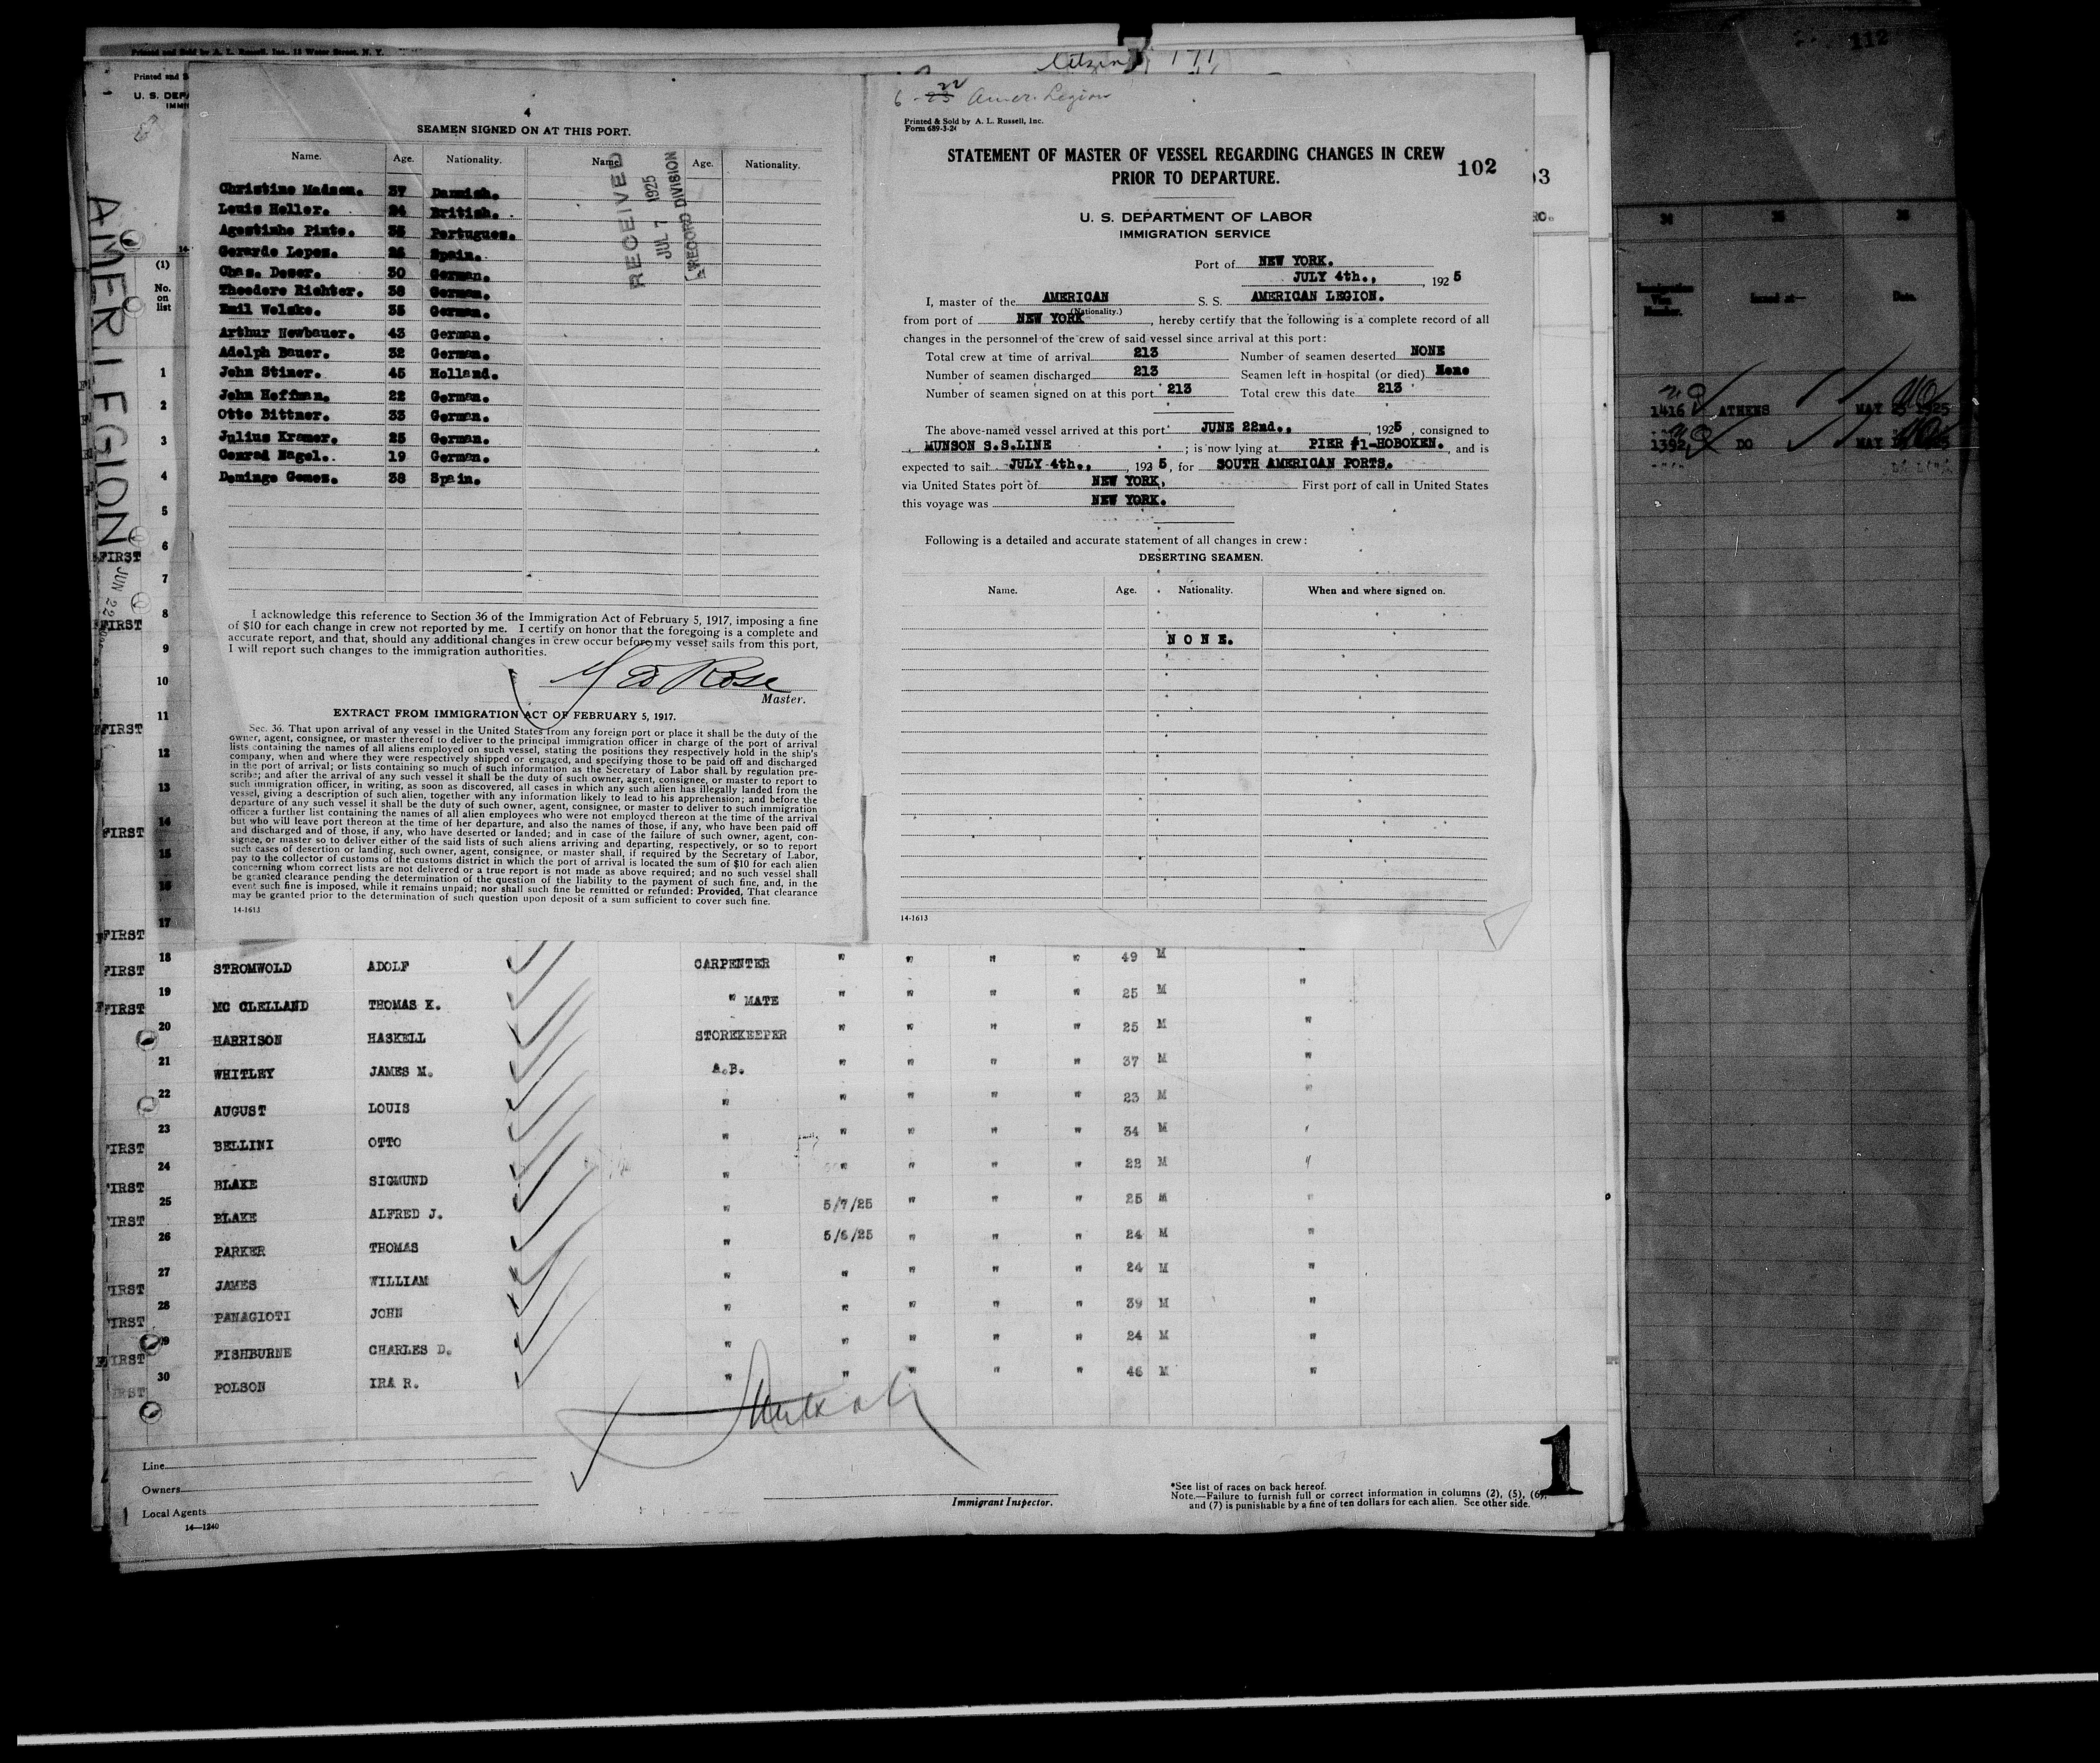 Printed and Sold by A. L. Russell, Inc., 11 Water Street, N. Y.
171
Printed and S
U. S. DEPA
IMMI
AMER LEGION
JUN 22
14-
(1)
No.
on
list
1
2
3
4
5
6
7
8
9
10
11
12
13
14
15
16
17
FIRST
FIRST
FIRST
FIRST
FIRST
4
SEAMEN SIGNED ON AT THIS PORT.
Name. Age. Nationality. Name. Age. Nationality.
Christine Madsen. 37 Dannish.
Louis Heller. 24 British.
Agostinho Pinto. 35 Portugues.
Gerardo Lopez. 26 Spain.
Chas. Deser. 30 German.
Theodore Richter. 38 German.
Emil Welske. 35 German.
Arthur Newbauer. 43 German.
Adolph Bauer. 32 German.
John Stiner. 45 Holland.
John Hoffman. 22 German.
Otto Bittner. 33 German.
Julius Kramer. 25 German.
Conrad Nagel. 19 German.
Domingo Gomez. 38 Spain.
RECEIVED
JUL 7 1925
RECORD DIVISION
I acknowledge this reference to Section 36 of the Immigration Act of February 5, 1917, imposing a fine
of $10 for each change in crew not reported by me. I certify on honor that the foregoing is a complete and
accurate report, and that, should any additional changes in crew occur before my vessel sails from this port,
I will report such changes to the immigration authorities.
Geo Rose
Master.
EXTRACT FROM IMMIGRATION ACT OF FEBRUARY 5, 1917.
Sec. 36. That upon arrival of any vessel in the United States from any foreign port or place it shall be the duty of the
owner, agent, consignee, or master thereof to deliver to the principal immigration officer in charge of the port of arrival
lists containing the names of all aliens employed on such vessel, stating the positions they respectively hold in the ship's
company, when and where they were respectively shipped or engaged, and specifying those to be paid off and discharged
in the port of arrival; or lists containing so much of such information as the Secretary of Labor shall by regulation pre-
scribe; and after the arrival of any such vessel it shall be the duty of such owner, agent, consignee, or master to report to
such immigration officer, in writing, as soon as discovered, all cases in which any such alien has illegally landed from the
vessel, giving a description of such alien, together with any information likely to lead to his apprehension; and before the
departure of any such vessel it shall be the duty of such owner, agent, consignee, or master to deliver to such immigration
officer a further list containing the names of all alien employees who were not employed thereon at the time of the arrival
but who will leave port thereon at the time of her departure, and also the names of those, if any, who have been paid off
and discharged and of those, if any, who have deserted or landed; and in case of the failure of such owner, agent, con-
signee, or master so to deliver either of the said lists of such aliens arriving and departing, respectively, or so to report
such cases of desertion or landing, such owner, agent, consignee, or master shall, if required by the Secretary of Labor,
pay to the collector of customs of the customs district in which the port of arrival is located the sum of $10 for each alien
concerning whom correct lists are not delivered or a true report is not made as above required; and no such vessel shall
be granted clearance pending the determination of the question of the liability to the payment of such fine, and, in the
event such fine is imposed, while it remains unpaid; nor shall such fine be remitted or refunded: Provided, That clearance
may be granted prior to the determination of such question upon deposit of a sum sufficient to cover such fine.
14-1613
6 - 23 22 Amer. Legion
Printed & Sold by A. L. Russell, Inc.
Form 689-3-24
STATEMENT OF MASTER OF VESSEL REGARDING CHANGES IN CREW
PRIOR TO DEPARTURE.
102
U. S. DEPARTMENT OF LABOR
IMMIGRATION SERVICE
Port of NEW YORK.
JULY 4th., , 1925
I, master of the AMERICAN S. S. AMERICAN LEGION.
(Nationality.)
from port of NEW YORK , hereby certify that the following is a complete record of all
changes in the personnel of the crew of said vessel since arrival at this port:
Total crew at time of arrival 213 Number of seamen deserted NONE
Number of seamen discharged 213 Seamen left in hospital (or died) None
Number of seamen signed on at this port 213 Total crew this date 213
The above-named vessel arrived at this port JUNE 22nd., , 1925 , consigned to
MUNSON S.S.LINE ; is now lying at PIER #1-HOBOKEN. , and is
expected to sail JULY 4th., , 1925, for SOUTH AMERICAN PORTS.
via United States port of NEW YORK, First port of call in United States
this voyage was NEW YORK.
Following is a detailed and accurate statement of all changes in crew:
DESERTING SEAMEN.
Name. Age. Nationality. When and where signed on.
N O N E.
14-1613
33
RC.
112
34 35 36
Immigration Visa Number. Issued at— Date.
1416 ATHENS MAY 25 1925
1392 DO MAY
FIRST 18 STROMWOLD ADOLF CARPENTER " " " " 49 M "
FIRST 19 MC CLELLAND THOMAS K. " MATE " " " " 25 M "
20 HARRISON HASKELL STOREKEEPER " " " " 25 M "
21 WHITLEY JAMES M. A.B. " " " " 37 M "
22 AUGUST LOUIS " " " " " 23 M "
FIRST 23 BELLINI OTTO " " " " " 34 M "
FIRST 24 BLAKE SIGMUND " " " " " 22 M "
FIRST 25 BLAKE ALFRED J. " 5/7/25 " " " 25 M "
26 PARKER THOMAS " 5/6/25 " " " 24 M "
FIRST 27 JAMES WILLIAM " " " " " 24 M "
FIRST 28 PANAGIOTI JOHN " " " " " 39 M "
FIRST 29 FISHBURNE CHARLES D. " " " " " 24 M "
FIRST 30 POLSON IRA R. " " " " " 46 M "
Line
Owners
Local Agents
14—1240
Immigrant Inspector.
*See list of races on back hereof.
Note.—Failure to furnish full or correct information in columns (2), (5), (6),
and (7) is punishable by a fine of ten dollars for each alien. See other side.
1